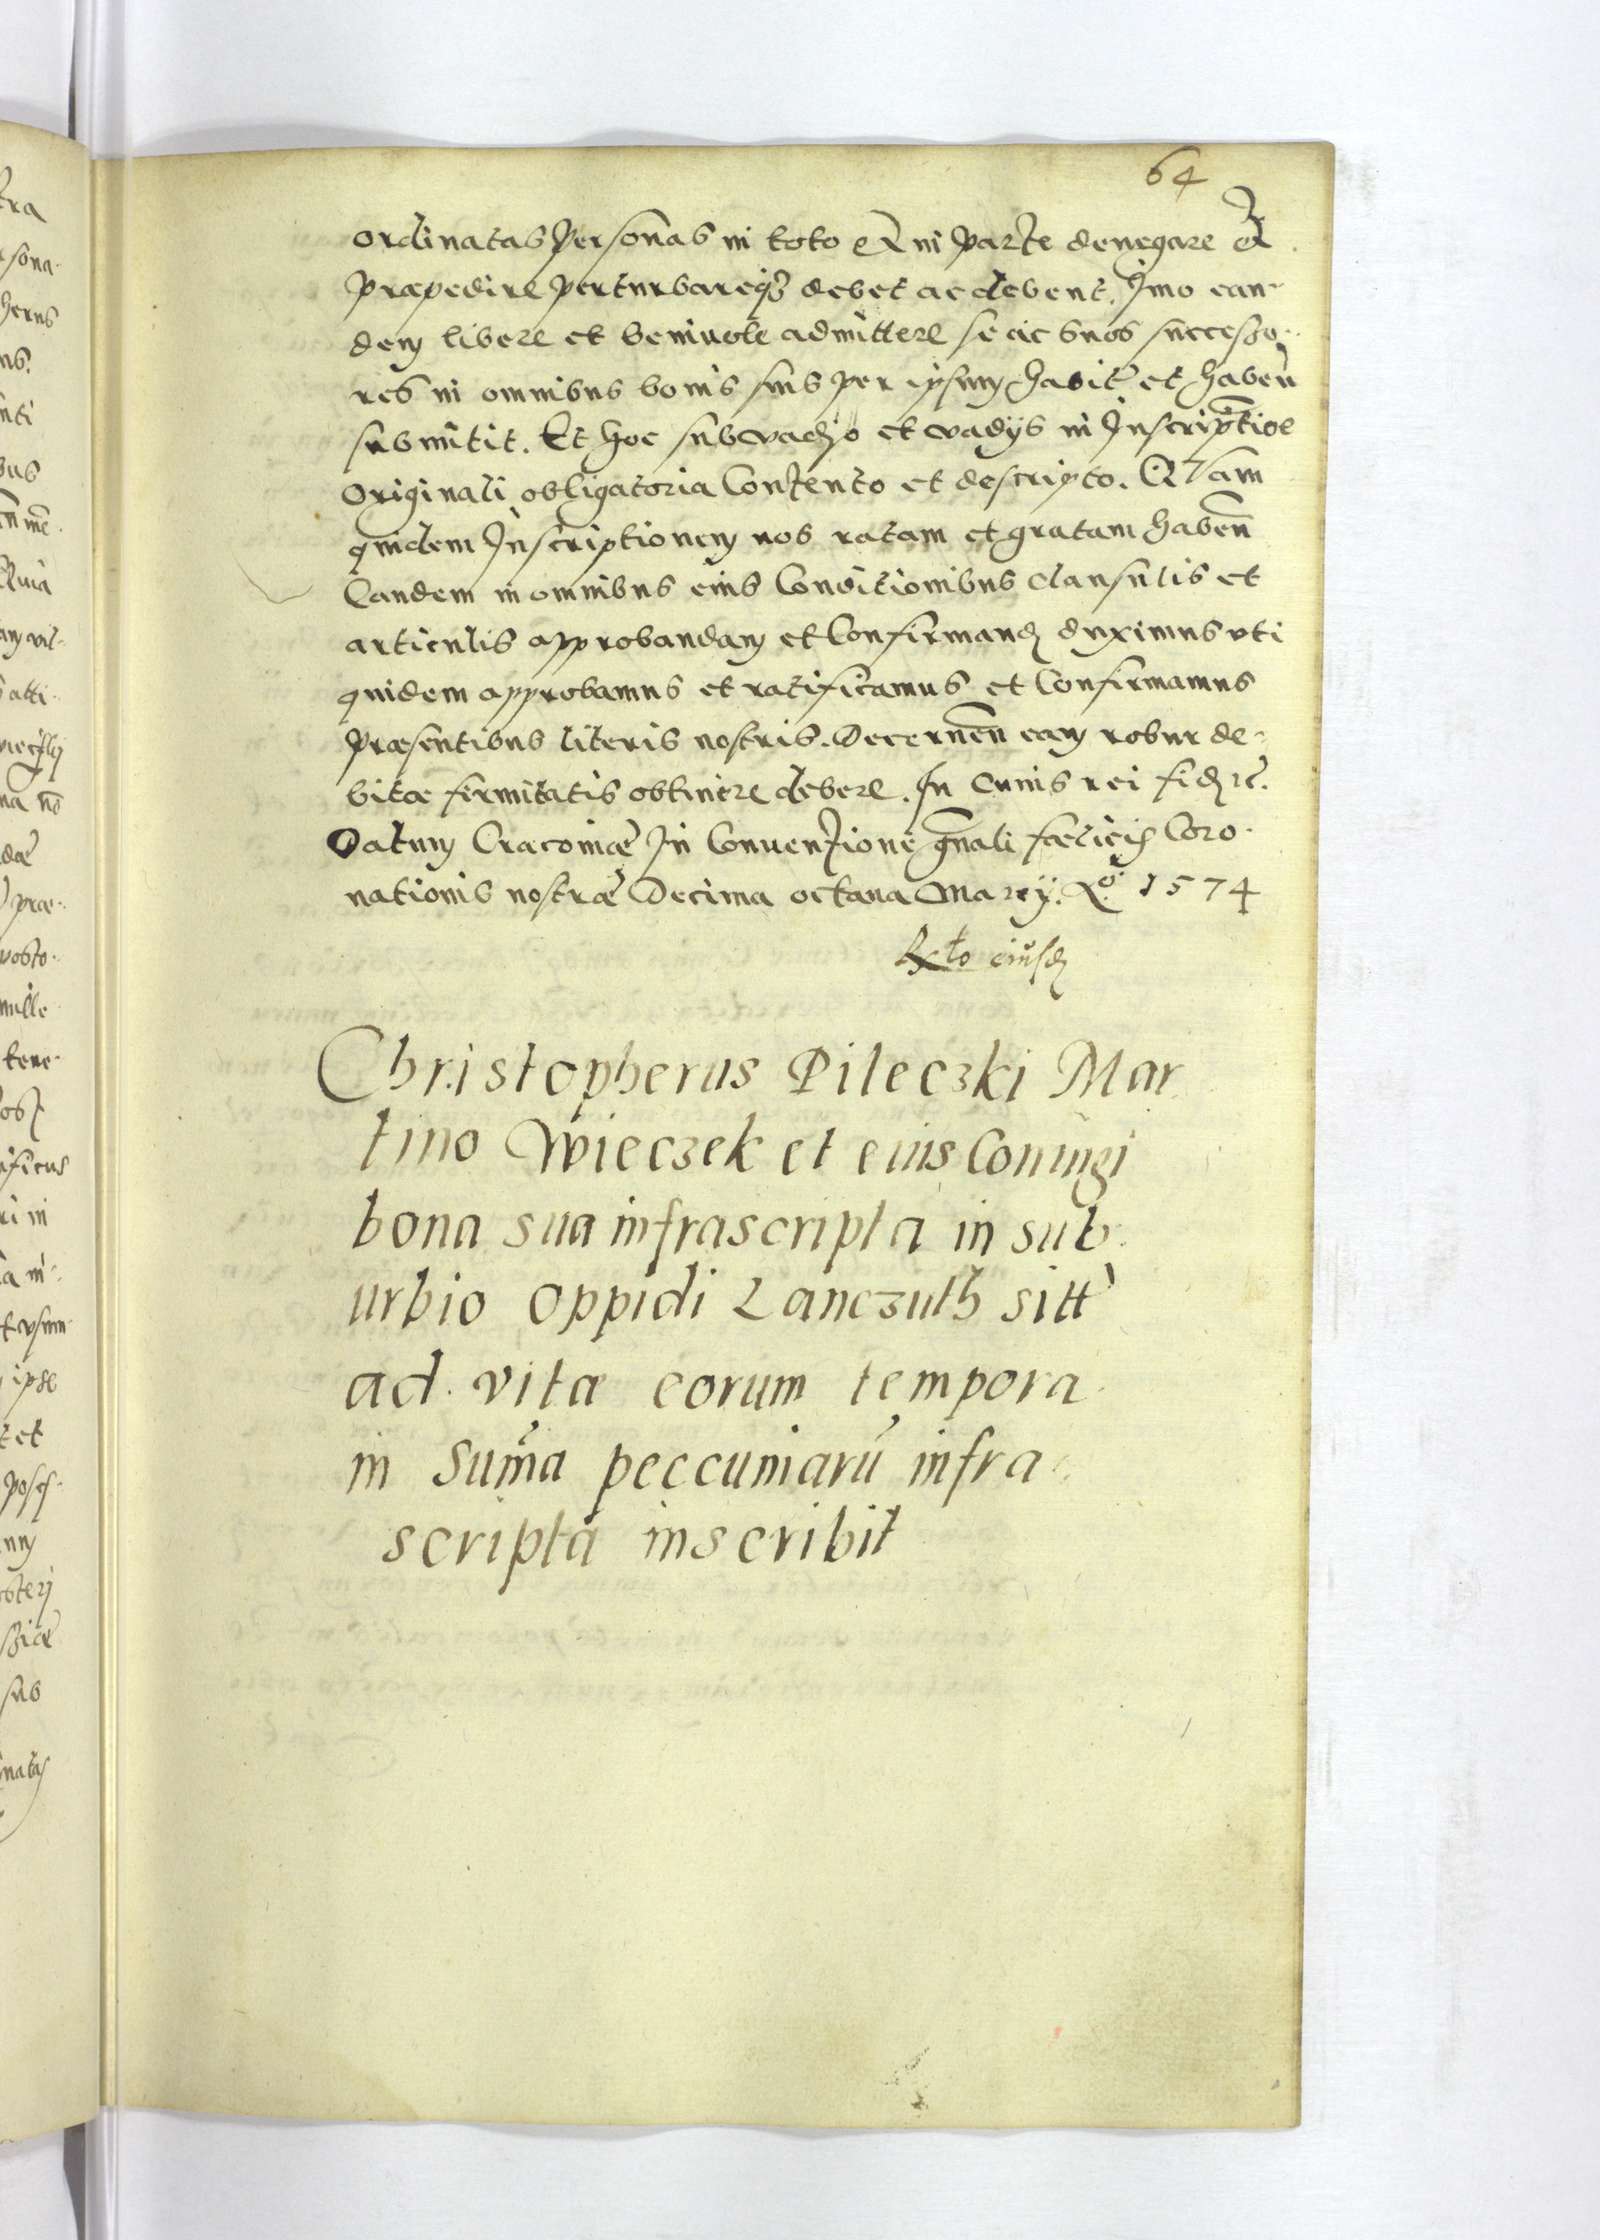 64
ordinatas Personas in toto Et in parte denegare Et
præpedire perturbareqз debet ac debent. Imo ean-
dem libere et beniuole admittere se ac suos successo-
res in omnibus bonis suis per ipsum habit̃ et habeñ
submittit. Et hoc sub vadio et vadijs in Inscriptioe
Originali obligatoria Contento et descripto. QVam
quidem Inscriptionem nos ratam et gratam habeñ
Eandem in omnibus eius Conditionibus clausulis et
articulis approbandam et Confirmand duximus vti
quidem approbamus et ratificamus et Confirmamus
præsentibus literis nostris. Decerneñ eam robur de-
bitæ firmitatis obtinere debere. In Cuius rei fid etc.
Datum Cracouiæ In Conuentione gñali fœlicis Coro-
nationis nostræ Decima octaua Marcij. Ao. 1574
Rcto eiusd
Christopherus Pileczki Mar
tino Wieczek et eius Coniugi
bona sua infrascripta in sub-
urbio oppidi Lanczuth sitt
ad vitæ eorum tempora
in sum̃a peccuniarũ infra-
scripta inscribit
tra
sona-
herus
ns.
nti
bus
Quia
am vil-
atti-
na nõ
dæ
præ-
mille
tene-
ificus
ri in
a in-
ipse
t et
sub
natas